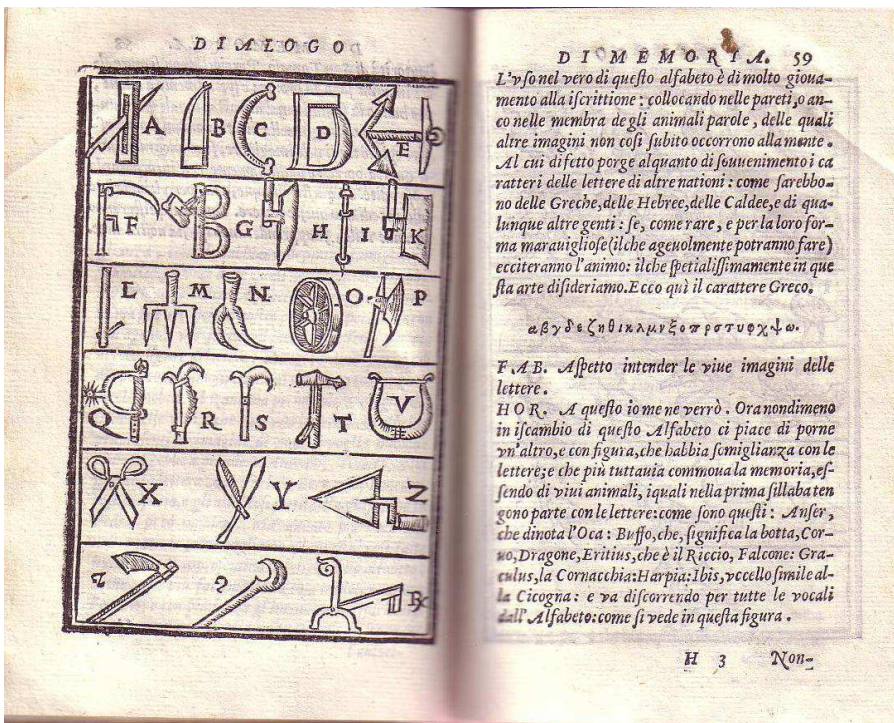 DIALOGO
A B C D E
F G H I K
L M N O P
Q R S T V
X Y Z
DI MEMORIA. 59
L'vſo nel vero di queſto alfabeto è di molto gioua-
mento alla iſcrittione: collocando nelle pareti, o an-
co nelle membra de gli animali parole, delle quali
altre imagini non coſi ſubito occorrono alla mente.
Al cui difetto porge alquanto di ſouuenimento i ca
ratteri delle lettere di altre nationi: come ſarebbo-
no delle Greche, delle Hebree, delle Caldee, e di qua-
lunque altre genti: ſe, come rare, e per la loro for-
ma marauiglioſe (il che ageuolmente potranno fare)
ecciteranno l'animo: il che ſpetialiſſimamente in que
ſta arte diſideriamo. Ecco quì il carattere Greco.
αβγδεζηθικλμνξοπρστυφχψω.
FAB. Aſpetto intender le viue imagini delle
lettere.
HOR. A queſto io me ne verrò. Ora nondimeno
in iſcambio di queſto Alfabeto ci piace di porne
vn'altro, e con figura, che habbia ſomiglianza con le
lettere; e che più tuttauia commoua la memoria, eſ-
ſendo di viui animali, i quali nella prima ſillaba ten
gono parte con le lettere: come ſono queſti: Anſer,
che dinota l'Oca: Buffo, che, ſignifica la botta, Cor-
uo, Dragone, Eritius, che è il Riccio, Falcone: Gra-
culus, la Cornacchia: Harpia: Ibis, vccello ſimile al-
la Cicogna: e va diſcorrendo per tutte le vocali
dall'Alfabeto: come ſi vede in queſta figura.
H 3 Non-